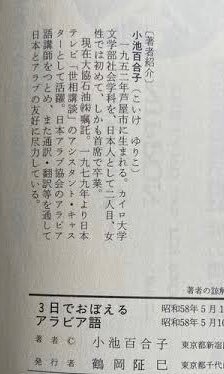 〔著者紹介〕
小池百合子（こいけ　ゆりこ）
一九五二年芦屋市に生まれる。カイロ大学
文学部社会学科を、日本人として二人目、女
性では初めて、しかも首席で卒業。
現在大協石油㈱嘱託。一九七九年より日本
テレビ「世相講談」のアシスタント・キャス
ターとして活躍。日本アラブ協会のアラビア
語講師をつとめ、また通訳・翻訳等を通して
日本とアラブの友好に尽力している。
著者の
3日でおぼえる
アラビア語
昭和58年5月1
昭和58年5月
著者© 小池百合子
東京都新宿
発行者 鶴岡阷巳
東京都千代